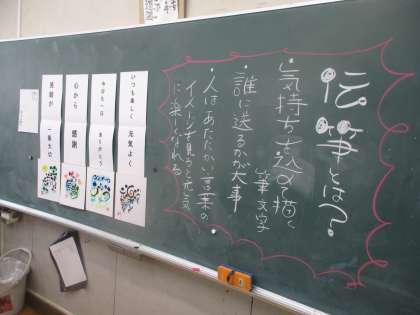 伝筆とは？
・気持ちを込めて描く
筆文字
・誰に送るかが大事
・人はあたたかい言葉の
イメージを見ると元気
に楽しくなれる
いつも楽しく
元気よく
今日も一日
ありがとう
心から
感謝
笑顔が
一番大切